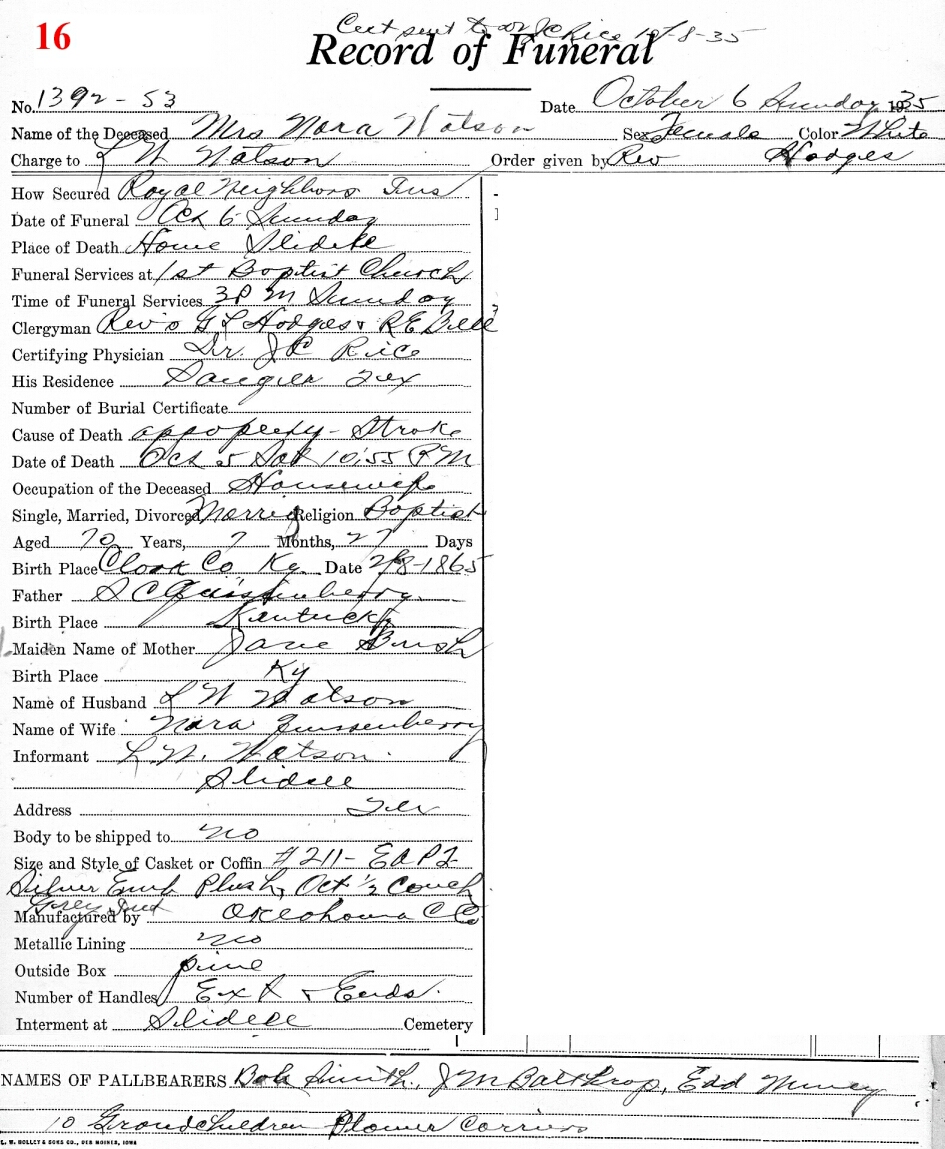 16
Cert sent to Dr J C Rice 10/8-35
Record of Funeral
No. 1392 - 53 Date October 6 Sunday 1935
Name of the Deceased Mrs Nora Watson Sex Female Color White
Charge to L W Watson Order given by Rev Hodges
How Secured Royal Neighbors Ins
Date of Funeral Oct 6 Sunday
Place of Death Home Slidell
Funeral Services at 1st Baptist Church
Time of Funeral Services 3 P M Sunday
Clergyman Rev's G L Hodges & R E Bell
Certifying Physician Dr. J C Rice
His Residence Sanger Tex
Number of Burial Certificate
Cause of Death appoplexy - Stroke
Date of Death Oct 5 Sat 10:55 P M
Occupation of the Deceased Housewife
Single, Married, Divorced Married Religion Baptist
Aged 70 Years, 7 Months, 27 Days
Birth Place Clark Co Ky. Date 2/8-1865
Father S C Quissenberry
Birth Place Kentucky
Maiden Name of Mother Jane Bush
Birth Place Ky
Name of Husband L W Watson
Name of Wife Nora Quissenberry
Informant L W. Watson
Slidell
Address Tex
Body to be shipped to no
Size and Style of Casket or Coffin # 211 -
Silver Emb Plush, Oct 1/2 Couch
Grey Int
Manufactured by Oklahoma C Co
Metallic Lining no
Outside Box pine
Number of Handles Ex & Ends.
Interment at Slidell Cemetery
NAMES OF PALLBEARERS Bob Smith, J M Balthrop, Edd
10 Grandchildren Flower Carriers
L. W. HOLLEY & SONS CO., DES MOINES, IOWA